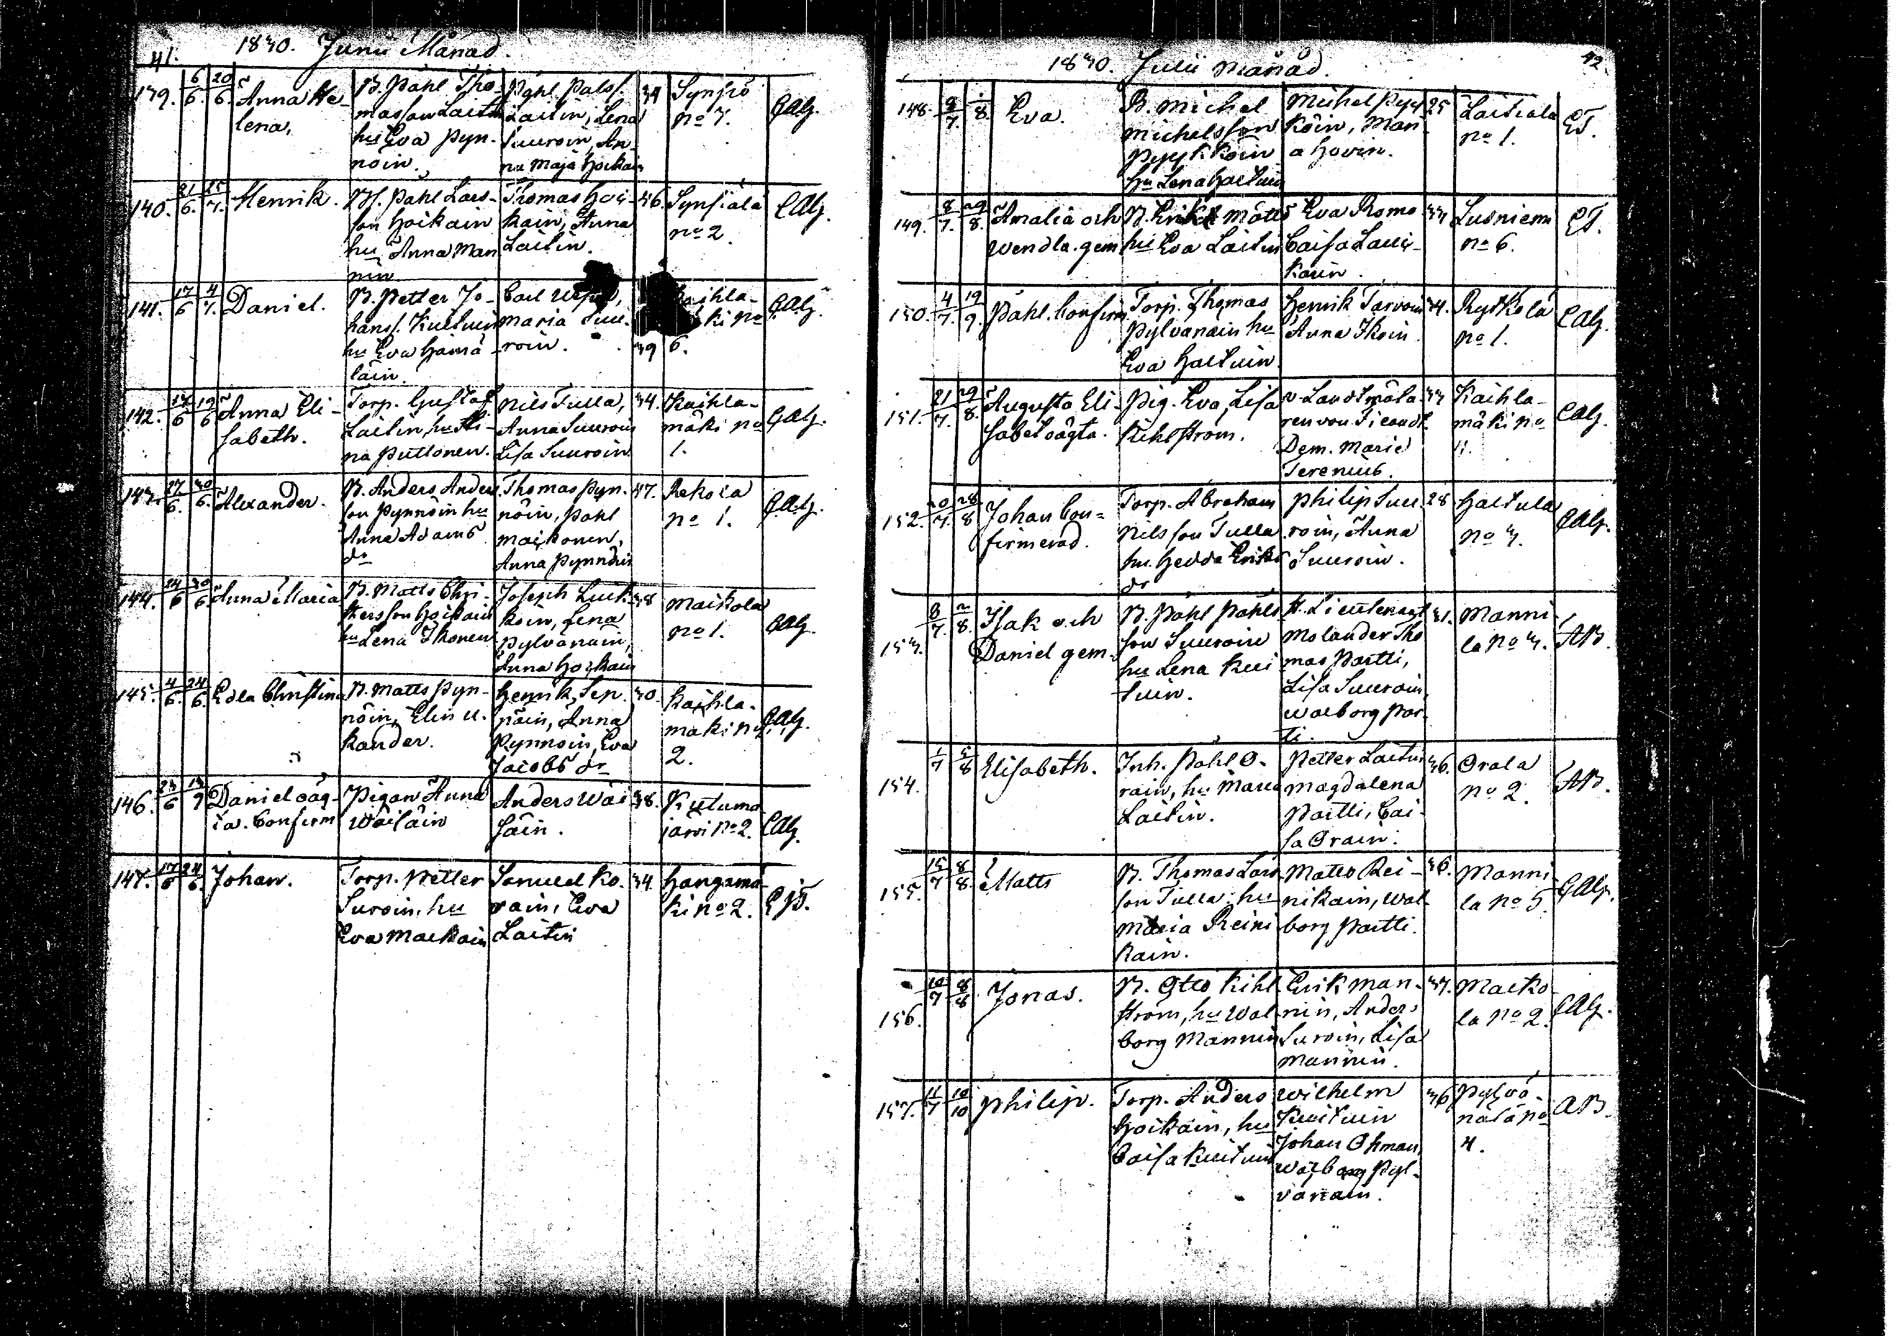 41.
1830. Junii Månad.
139. 6/6 20/6 Anna He-
lena.
B. Påhl Tho-
masson Laitin
hu Eva Pyn-
nöin.
Påhl Pålss.
Laitin, Lena
Suuroin, An-
na Maja Hoikain
34
Synsiö
no 7.
CAlg.
140. 21/6 Henrik.
B. Påhl Lars-
son Hoikain
hu Anna Man
nin
Thomas Hoi-
kain, Anna
Laitin.
36.
Synsiälä
no 2.
CAlg.
141. 17/6 4/7 Daniel.
B. Petter Jo-
hanss. Kuituin
hu Eva Hämä-
läin.
Carl
Maria Suu-
roin.
39
6.
CAlg.
142. 17/6 19/6 Anna Eli-
sabeth.
Torp. Gustaf
Laitin, hu
na Puttonen.
Nils Tulla,
Anna Suuroin
Lisa Suuroin
34.
Kaihla-
mäki no
1.
CAlg.
143. 27/6 30/6 Alexander.
B. Anders Anders
son Pynnöin hu
Anna Adams
dr
Thomas Pyn-
nöin, Påhl
Maikonen,
Anna Pynnöin
37.
Rekola
no 1.
CAlg.
144. 24/6 30/6 Anna Maria
B. Matts Chri-
sterson Hoikain
hu Lena Ikonen
Joseph Luuk-
köin, Lena
Pylvänäin,
Anna Hoikain
38
Maikola
no 1.
CAlg.
145. 4/6 24/6 Edla Christina
B. Matts Pyn-
nöin, Elin U-
kander.
Henrik Sep-
päin, Anna
Pynnöin, Eva
Jacobs dr
30.
Kaihla-
mäki no
2.
CAlg.
146. 23/6 Daniel oäg-
ta. Confirm
Pigan Anna
Wäisäin
Anders Wäi-
säin.
38.
Kutuma
järvi no 2.
CAlg.
147. 17/6 24/6 Johan.
Torp. Petter
Suroin, hu
Eva Maikain
Samuel Ko-
vain, Eva
Laitin
34.
Hangasmä-
ki no 2.
1830. Julii Månad.
42.
148. 8 Eva.
B. Michel
Michelsson
Pyykköin
hu Lena Haltuin
Michel Pyy-
köin, Mari-
a Hovin.
25
Laitiala
no 1.
CT.
149. 8/7 29/8 Amalia och
Wendla. gem
B. Erik Matts
hu Eva Laitin
Eva Romo
Caisa Lauk-
kain.
33
Lusniemi
no 6.
CT.
150. 4/7 19/9 Påhl. Confirm
Torp. Thomas
Pylvänäin hu
Eva Haltuin
Henrik Tarvain
Anna Ikoin
34.
Ruokola
no 1.
CAlg.
151. 21/7 29/8 Augusta Eli-
sabet oägta.
Pig. Eva Lisa
Kihlström.
v. Landtmäta-
ren von
Dem. Marie
Terenius.
33
Kaihla-
mäki no
11.
CAlg.
152. 20/7 28/8 Johan Con-
firmerad.
Torp. Abraham
Nilsson Tulla
hu Hedda Eriks
dr
Philip Suu-
roin, Anna
Suuroin.
28
Haltula
no 3.
CAlg.
153. 8/7 2/8 Isak och
Daniel gem.
B. Påhl Påhls
son Suuroin
hu Lena Kui
tuin.
H. Lieutenant
Molander Tho
mas Partti,
Lisa Suuroin
Walborg Par-
ti.
31.
Manni-
la no 3.
AB.
154. 1/7 5/8 Elisabeth.
Inh. Påhl O-
rain, hu Maria
Laitin.
Petter Laitin
Magdalena
Partti, Cai-
sa Orain.
36.
Orala
no 2.
AB.
155. 15/7 8/8 Matts
B. Thomas Lars
son Tulla hu
Maria Reini
kain.
Matts Rei-
nikain, Wal-
borg Partti.
36.
Manni-
la no 5
CAlg.
156. 10/7 8/8 Jonas.
B. Otto Kihl
ström, hu Wal-
borg Mannin
Erik Man-
nin, Anders
Suroin, Lisa
Mannin.
37.
Maiko-
la no 2.
CAlg.
157. 11/7 10/10 Philip.
Torp. Anders
Hoikain, hu
Caisa Kuituin
Wilhelm
Kuituin
Johan Öhman,
Walborg Pyl-
vänäin.
36
Pylvä-
nälä no
4.
AB.